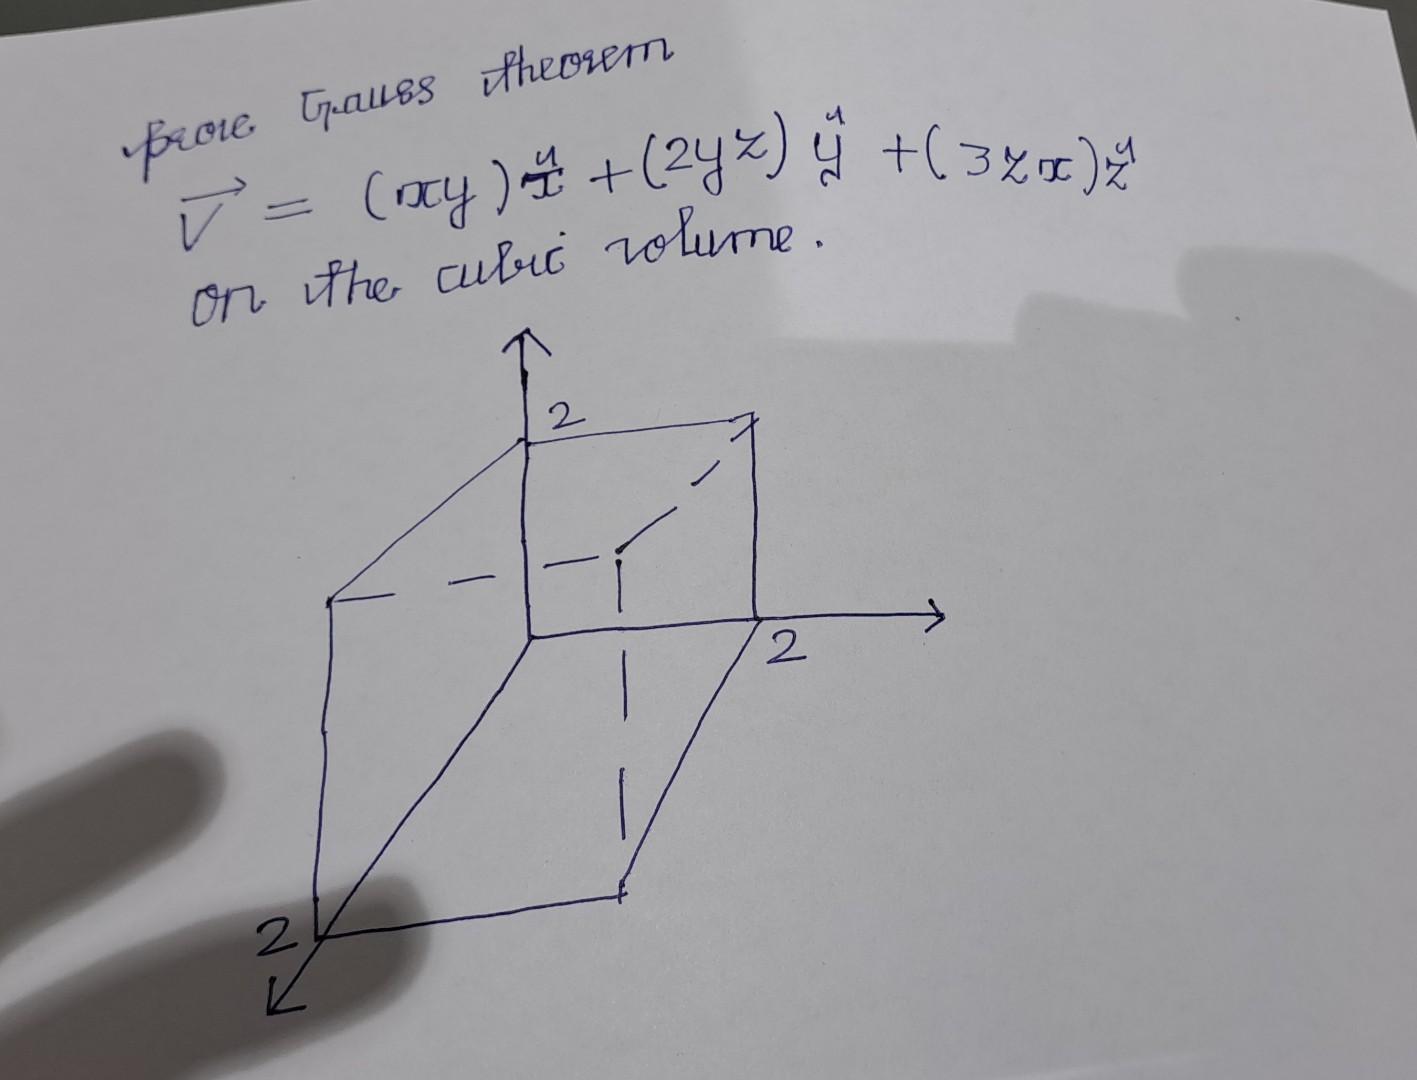 prove Gauss theorem
V⃗ = (xy)x̂ + (2yz)ŷ + (3zx)ẑ
on the cubic volume.
2
2
2